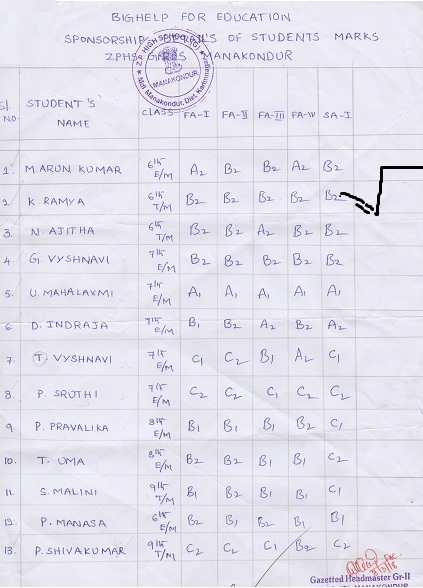 BIGHELP FOR EDUCATION
SPONSORSHIP OF STUDENTS MARKS
ZPHS GIRLS MANAKONDUR
Sl NO. STUDENT'S NAME CLASS FA-I FA-II FA-III FA-IV SA-I
1. M. ARUN KUMAR 6th E/M A2 B2 B2 A2 B2
2 K. RAMYA 6th T/M B2 B2 B2 B2 B2
3. N. AJITHA 6th T/M B2 B2 A2 B2 B2
4. G VYSHNAVI 7th E/M B2 B2 B2 B2 B2
5. U. MAHALAXMI 7th E/M A1 A1 A1 A1 A1
6. D. INDRAJA 7th E/M B1 B2 A2 B2 A2
7. T. VYSHNAVI 7th E/M C1 C2 B1 A2 C1
8. P. SRUTHI 7th E/M C2 C2 C1 C2 C2
9 P. PRAVALIKA 8th E/M B1 B1 B1 B2 C1
10. T. UMA 8th E/M B2 B2 B1 B1 C2
11. S. MALINI 9th T/M B1 B2 B1 B1 C1
12. P. MANASA 6th E/M B2 B1 B2 B1 B1
13. P. SHIVAKUMAR 9th T/M C2 C2 C1 B2 C2
Z P HIGH SCHOOL (G)
MANAKONDUR
Mdl Manakondur, Dist. Karimnagar
Gazetted Headmaster Gr-II